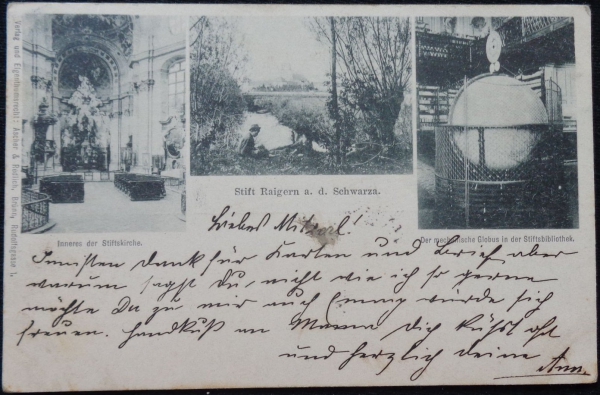 Verlag und Eigenthumsrecht: Ascher &
Brünn, Rudolfsgasse
Stift Raigern a. d. Schwarza.
Inneres der Stiftskirche.
Der mechanische Globus in der Stiftsbibliothek.
Liebes
Innigsten Dank für Karten und Brief aber
warum sagst Du, nicht wie ich so gerne
möchte Du zu mir auch Emmy würde sich
freuen. Handkuß an Mama Dich küßt oft
und herzlich deine